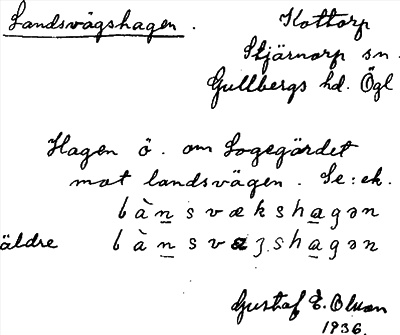 Landsvägshagen.
Kottorp
Stjärnorp sn.
Gullbergs hd. Ögl
Hagen ö. om Logegärdet
mot landsvägen. Se: ek.
làn̲svæksha̲gən
äldre làn̲svæʒsha̲gən
Gustaf E. Olson
1936.